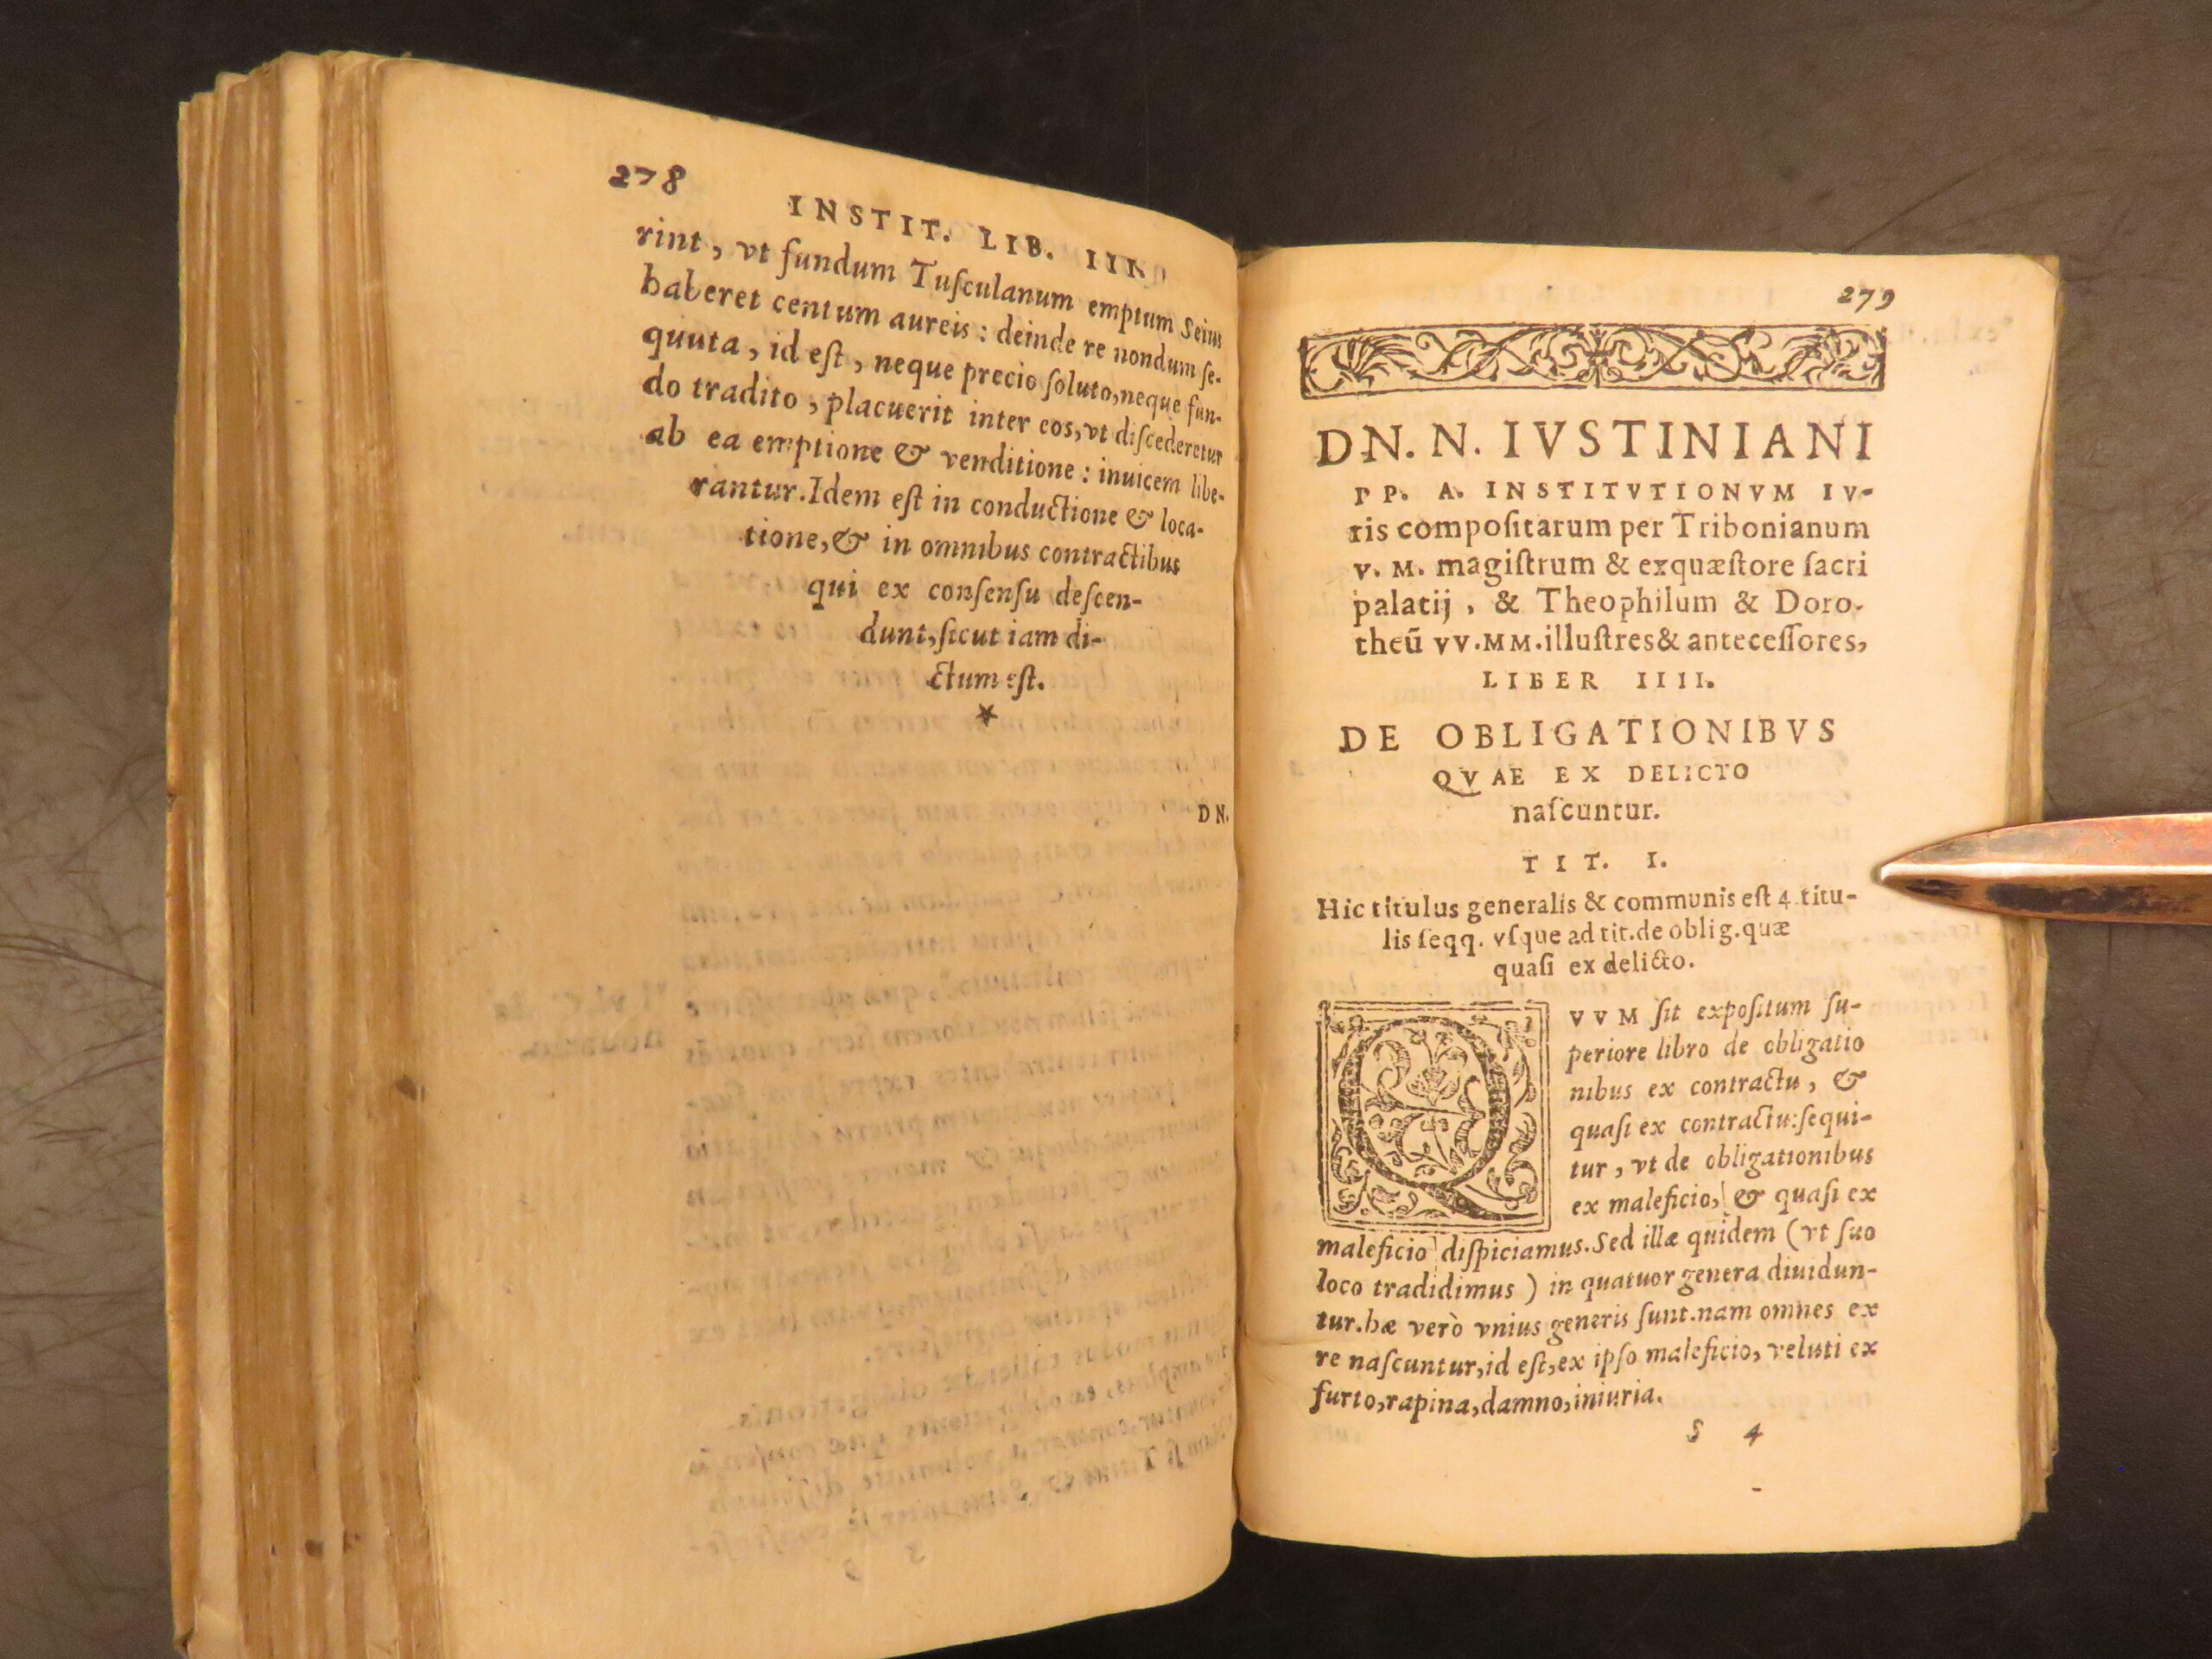 278
INSTIT. LIB. III
rint, vt fundum Tuſculanum emptum Seius
haberet centum aureis : deinde re nondum ſe-
quuta, id eſt, neque precio ſoluto, neque fun-
do tradito, placuerit inter eos, vt diſcederetur
ab ea emptione & venditione : inuicem libe-
rantur. Idem eſt in conductione & loca-
tione, & in omnibus contractibus
qui ex conſenſu deſcen-
dunt, ſicut iam di-
ctum eſt.
*
DN.
279
DN. N. IVSTINIANI
PP. A. INSTITVTIONVM IV-
ris compoſitarum per Tribonianum
V. M. magiſtrum & exquæſtore ſacri
palatij, & Theophilum & Doro-
theũ VV.MM. illuſtres & anteceſſores,
LIBER IIII.
DE OBLIGATIONIBVS
QVAE EX DELICTO
naſcuntur.
TIT. I.
Hic titulus generalis & communis eſt 4. titu-
lis ſeqq. vſque ad tit. de oblig. quæ
quaſi ex delicto.
QVVM ſit expoſitum ſu-
periore libro de obligatio
nibus ex contractu, &
quaſi ex contractu: ſequi-
tur, vt de obligationibus
ex maleficio, & quaſi ex
maleficio diſpiciamus. Sed illæ quidem (vt ſuo
loco tradidimus) in quatuor genera diuidun-
tur. hæ verò vnius generis ſunt. nam omnes ex
re naſcuntur, id eſt, ex ipſo maleficio, veluti ex
furto, rapina, damno, iniuria.
S 4